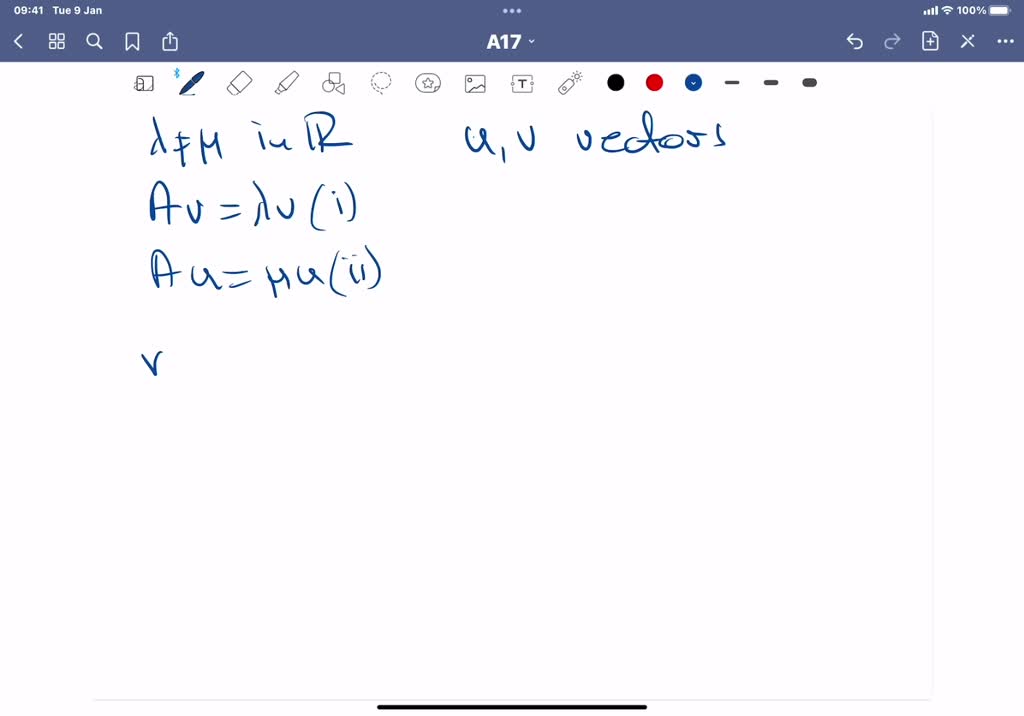 09:41 Tue 9 Jan 100%
A17
T
λ≠μ in ℝ u, v vectors
Av = λv (i)
Au = μu (ii)
v